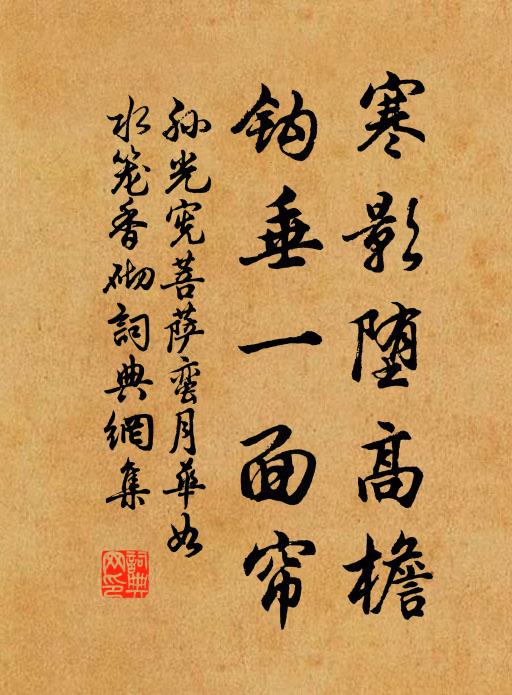 寒影堕高檐
钩垂一面帘
孙光宪菩萨蛮月华如
水笼香砌词典網集
詞典网印